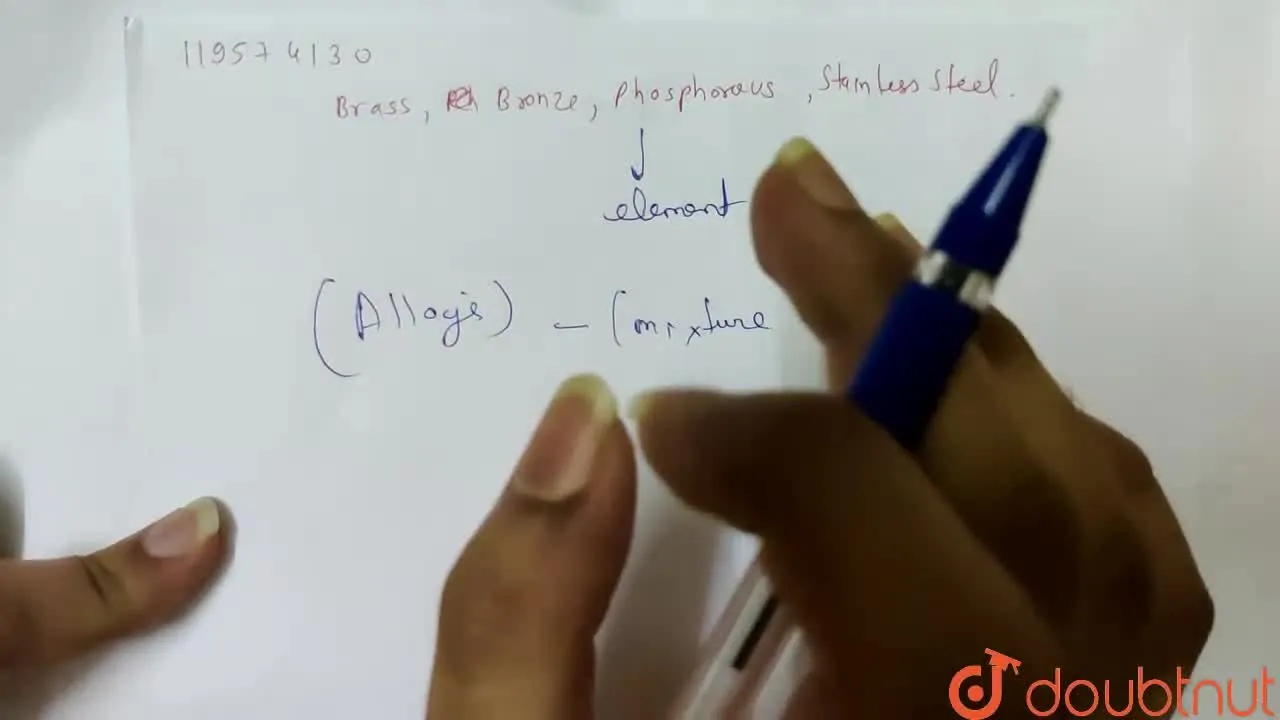 119574130
Brass, Bronze, Phosphorous, Stainless Steel.
element
(Alloy's) - (mixture
doubtnut